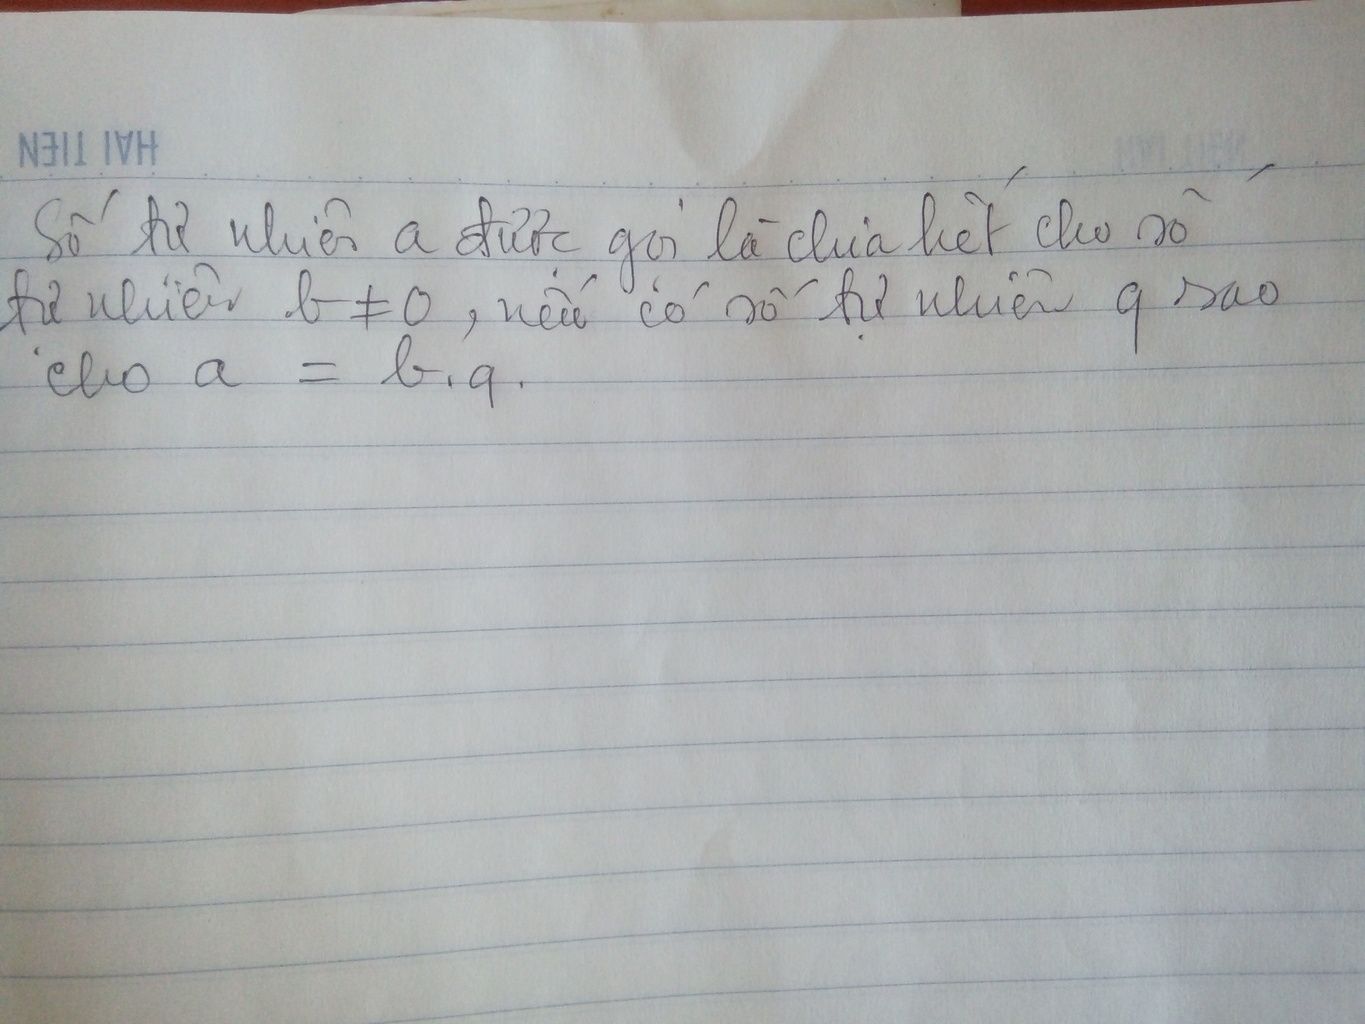 HAI TIEN
Số tự nhiên a được gọi là chia hết cho số
tự nhiên b ≠ 0, nếu có số tự nhiên q sao
cho a = b.q.